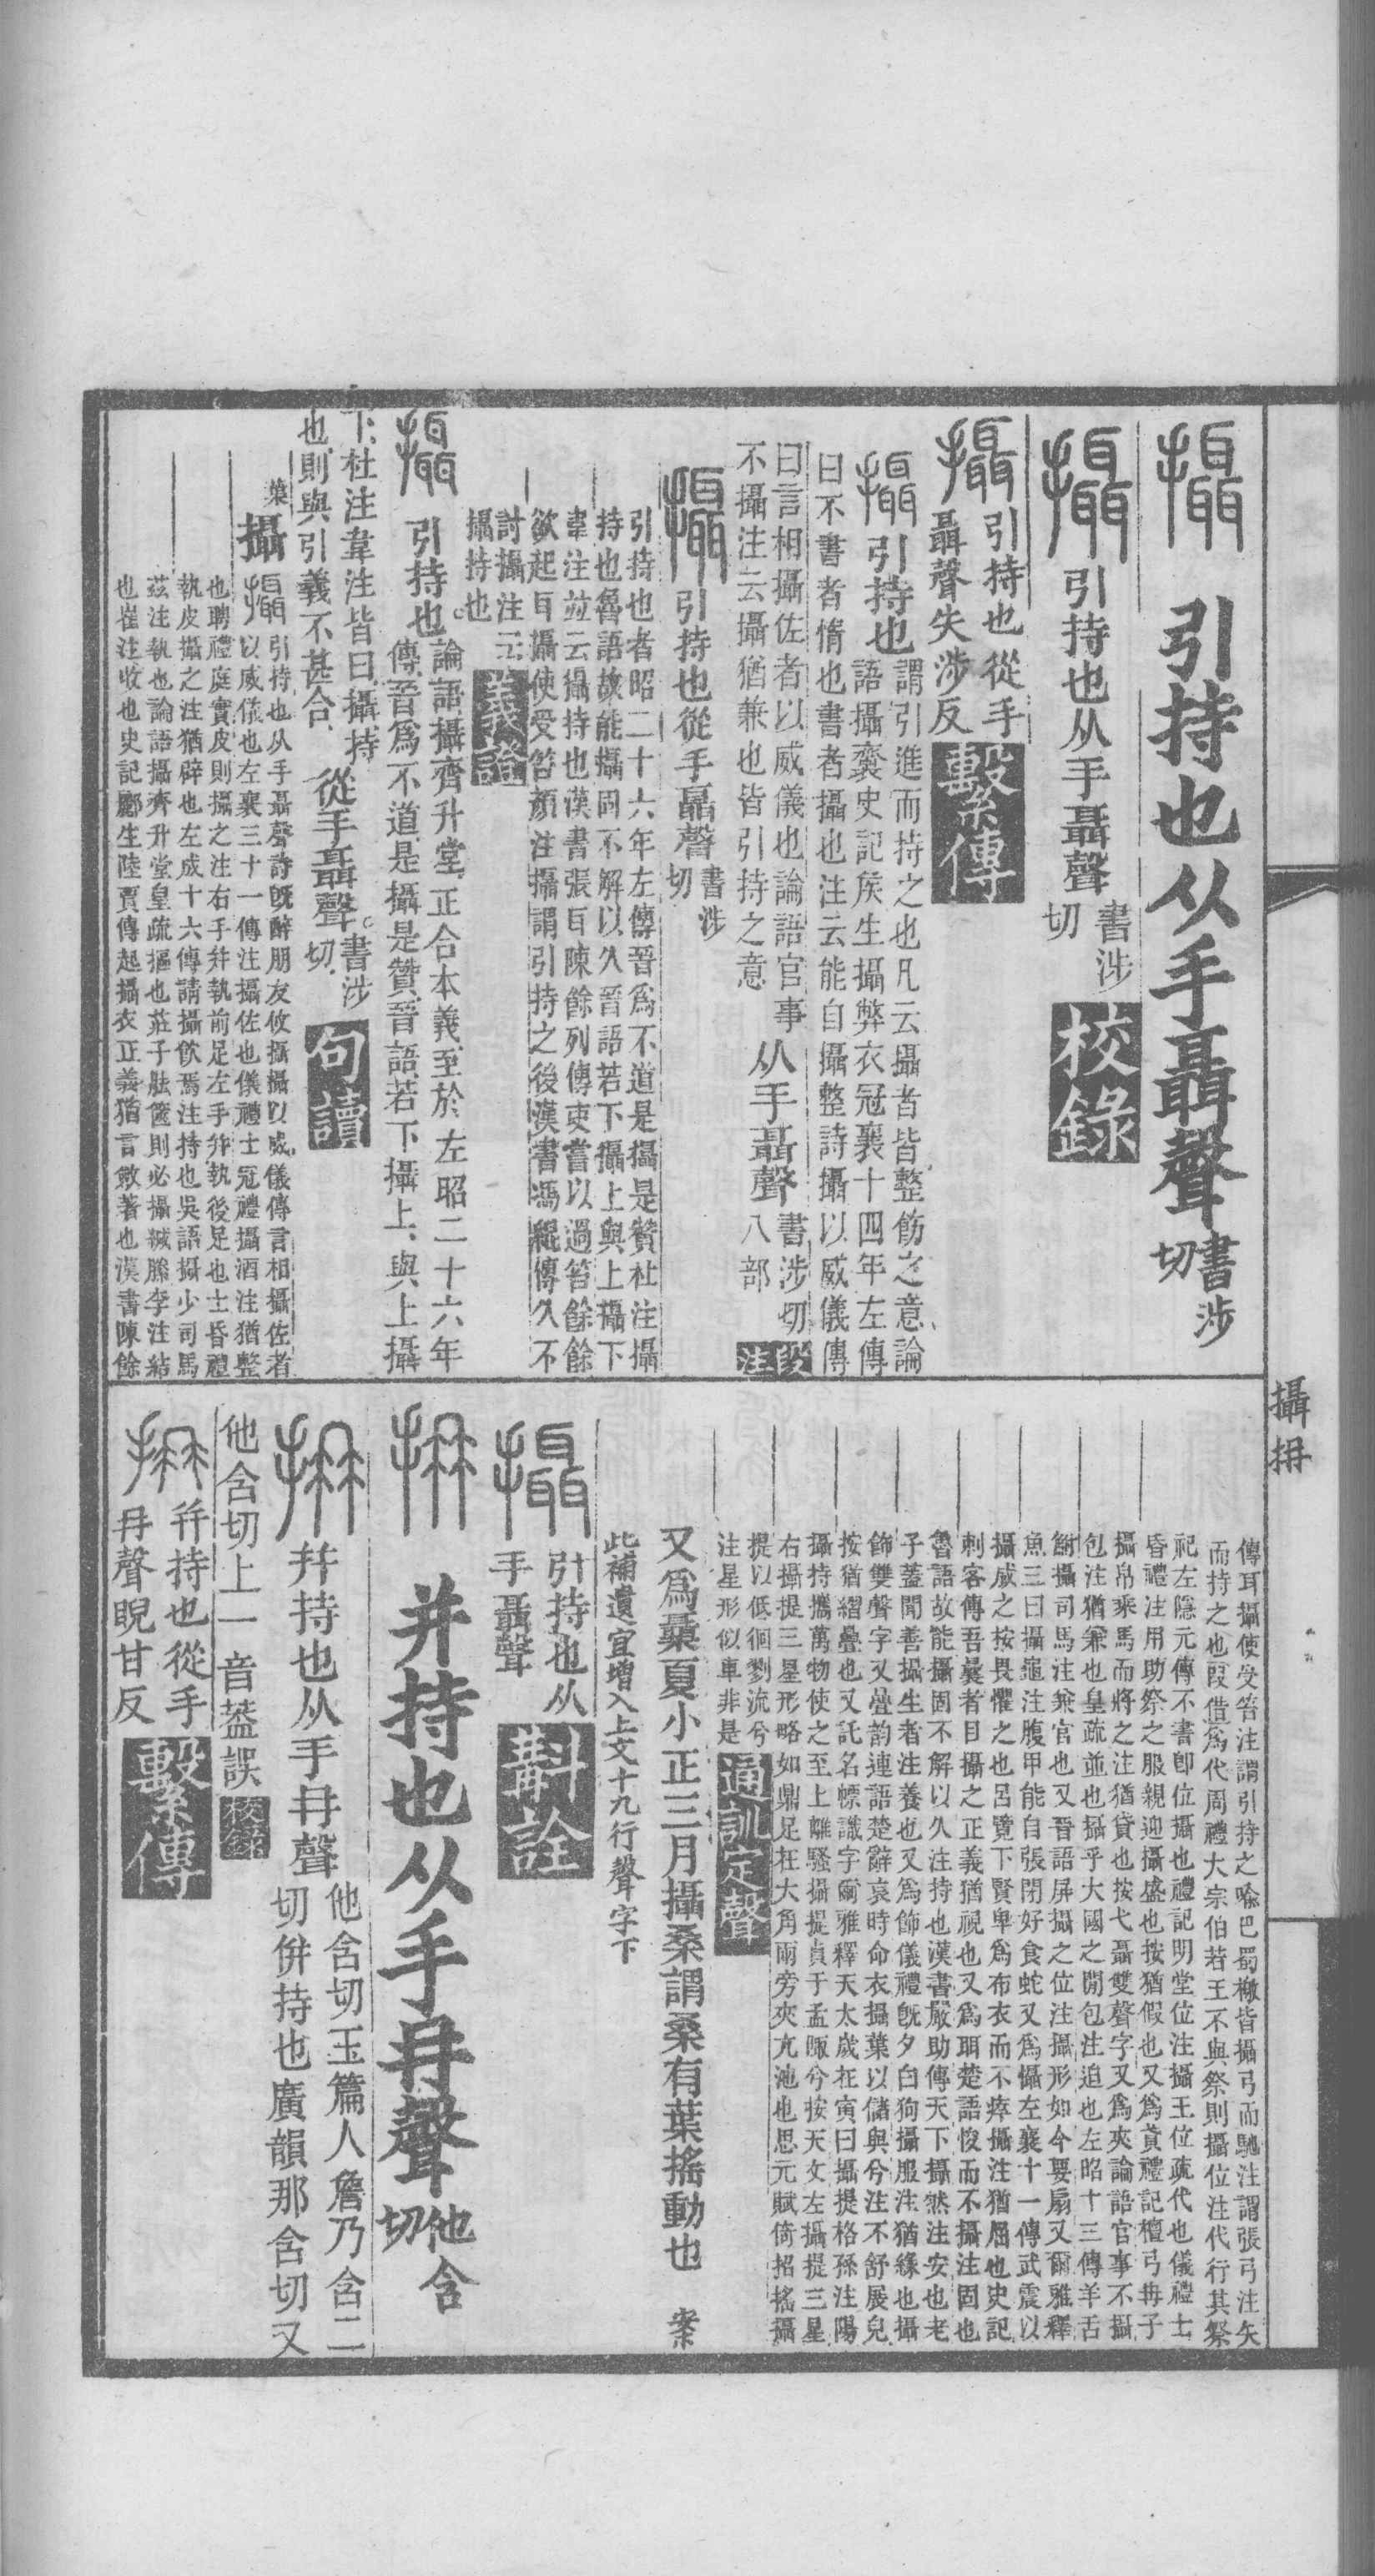 攝 引持也从手聶聲書涉切
攝 引持也从手聶聲書涉切 校錄
攝 引持也從手
聶聲失涉反 繫傳
攝 引持也謂引進而持之也凡云攝者皆整飭之意論
語攝齋史記矦生攝弊衣冠襄十四年左傳
曰不書者惰也書者攝也注云能自攝整詩攝以威儀傳
曰言相攝佐者以威儀也論語官事
不攝注云攝猶兼也皆引持之意 从手聶聲書涉切八部 段注
攝 引持也從手聶聲書涉切
引持也者昭二十六年左傳晉爲不道是攝是贊杜注攝
持也魯語故能攝固不解以久晉語若下攝上與上攝下
韋注竝云攝持也漢書張耳陳餘列傳吏嘗以過笞餘餘
欲起耳攝使受笞顏注攝謂引持之後漢書馮緄傳久不
討攝注云
攝持也 義證
攝 引持也論語攝齊升堂正合本義至於左昭二十六年
傳晉爲不道是攝是贊晉語若下攝上與上攝
下杜注韋注皆曰攝持
也則與引義不甚合 從手聶聲書涉切 句讀
攝 攝 引持也从手聶聲詩旣醉朋友攸攝攝以威儀傳言相攝佐者
以威儀也左襄三十一傳注攝佐也儀禮士冠禮攝酒注猶整
也聘禮庭實皮則攝之注右手幷執前足左手幷執後足也士昏禮
執皮攝之注猶辟也左成十六傳請攝飮焉注持也吳語攝少司馬
茲注執也論語攝齊升堂皇疏摳也莊子胠篋則必攝緘縢李注結
也崔注收也史記酈生陸賈傳起攝衣正義猶言斂著也漢書陳餘
攝 拑
傳耳攝使受笞注謂引持之喩巴蜀檄皆攝弓而馳注謂張弓注矢
而持之也叚借爲代周禮大宗伯若王不與祭則攝位注代行其祭
祀左隱元傳不書卽位攝也禮記明堂位注攝王位疏代也儀禮士
昏禮注用助祭之服親迎攝盛也按猶假也又爲貣禮記檀弓冉子
攝帛乘馬而將之注猶貸也按弋聶雙聲字又爲夾論語官事不攝
包注猶兼也皇疏並也攝乎大國之閒包注迫也左昭十三傳羊舌
鮒攝司馬注兼官也又晉語屛攝之位注攝形如今要扇又爾雅釋
魚三曰攝龜注腹甲能自張閉好食蛇又爲懾左襄十一傳武震以
攝威之按畏懼之也呂覽下賢卑爲布衣而不瘁攝注猶屈也史記
刺客傳吾曩者目攝之正義猶視也又爲聑楚語悛而不攝注固也
魯語故能攝固不解以久注持也漢書嚴助傳天下攝然注安也老
子蓋聞善攝生者注養也又爲飾儀禮旣夕白狗攝服注猶緣也攝
飾雙聲字又疊韵連語楚辭哀時命衣攝葉以儲與兮注不舒展皃
按猶褶疊也又託名幖識字爾雅釋天太歲在寅曰攝提格孫注陽
攝持攜萬物使之至上離騷攝提貞于孟陬兮按天文左攝提三星
右攝提三星形略如鼎足在大角兩旁夾亢池也思元賦倚招搖攝
提以低佪劉流兮
注星形似車非是 通訓定聲
又爲葉夏小正三月攝桑謂桑有葉搖動也 案
此補遺宜增入上文十九行聲字下
攝 引持也从
手聶聲 斠詮
拑 幷持也从手冄聲他含切
拑 幷持也从手冄聲他含切玉篇人詹乃含二
切倂持也廣韻那含切又
他含切上一音葢誤 校錄
拑 幷持也從手
冄聲睨甘反 繫傳